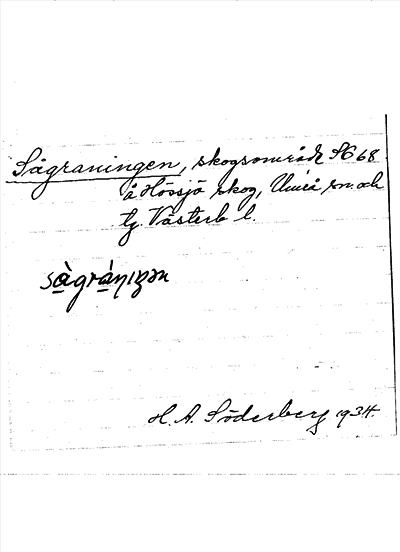 Sågraningen, skogsområde SG 68
å Hössjö skog, Umeå sn. och
tg. Västerb l.
sàgráṇıŋən
H. A. Söderberg 1934.